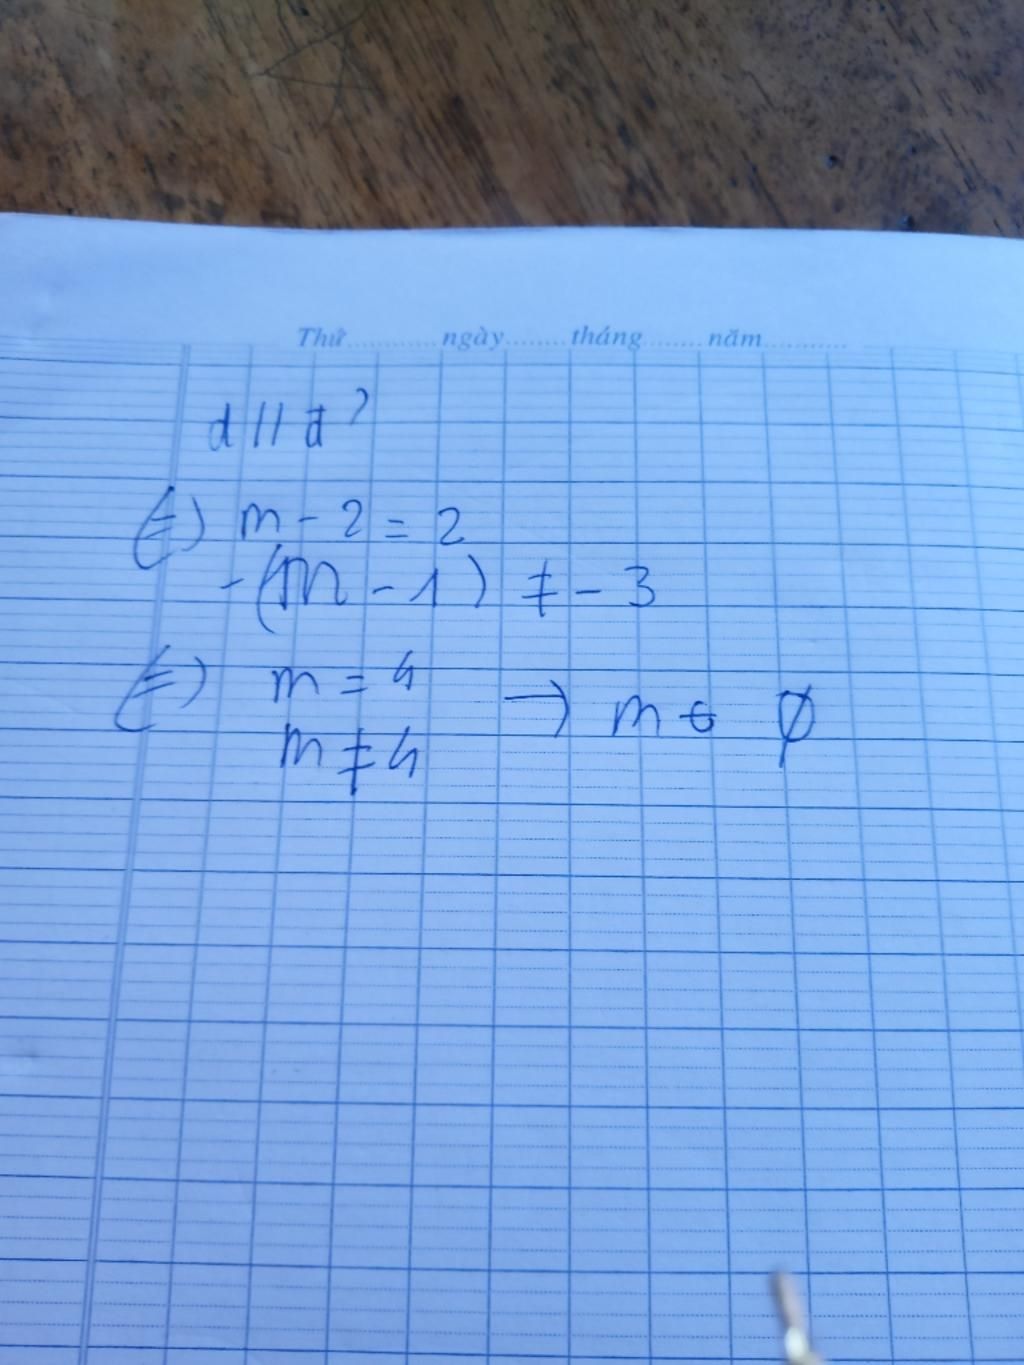 Thứ.............ngày........tháng........năm...........
d // đ'
(=) m - 2 = 2
-(m - 1) ≠ - 3
(=) m = 4 → m ∈ ∅
m ≠ 4